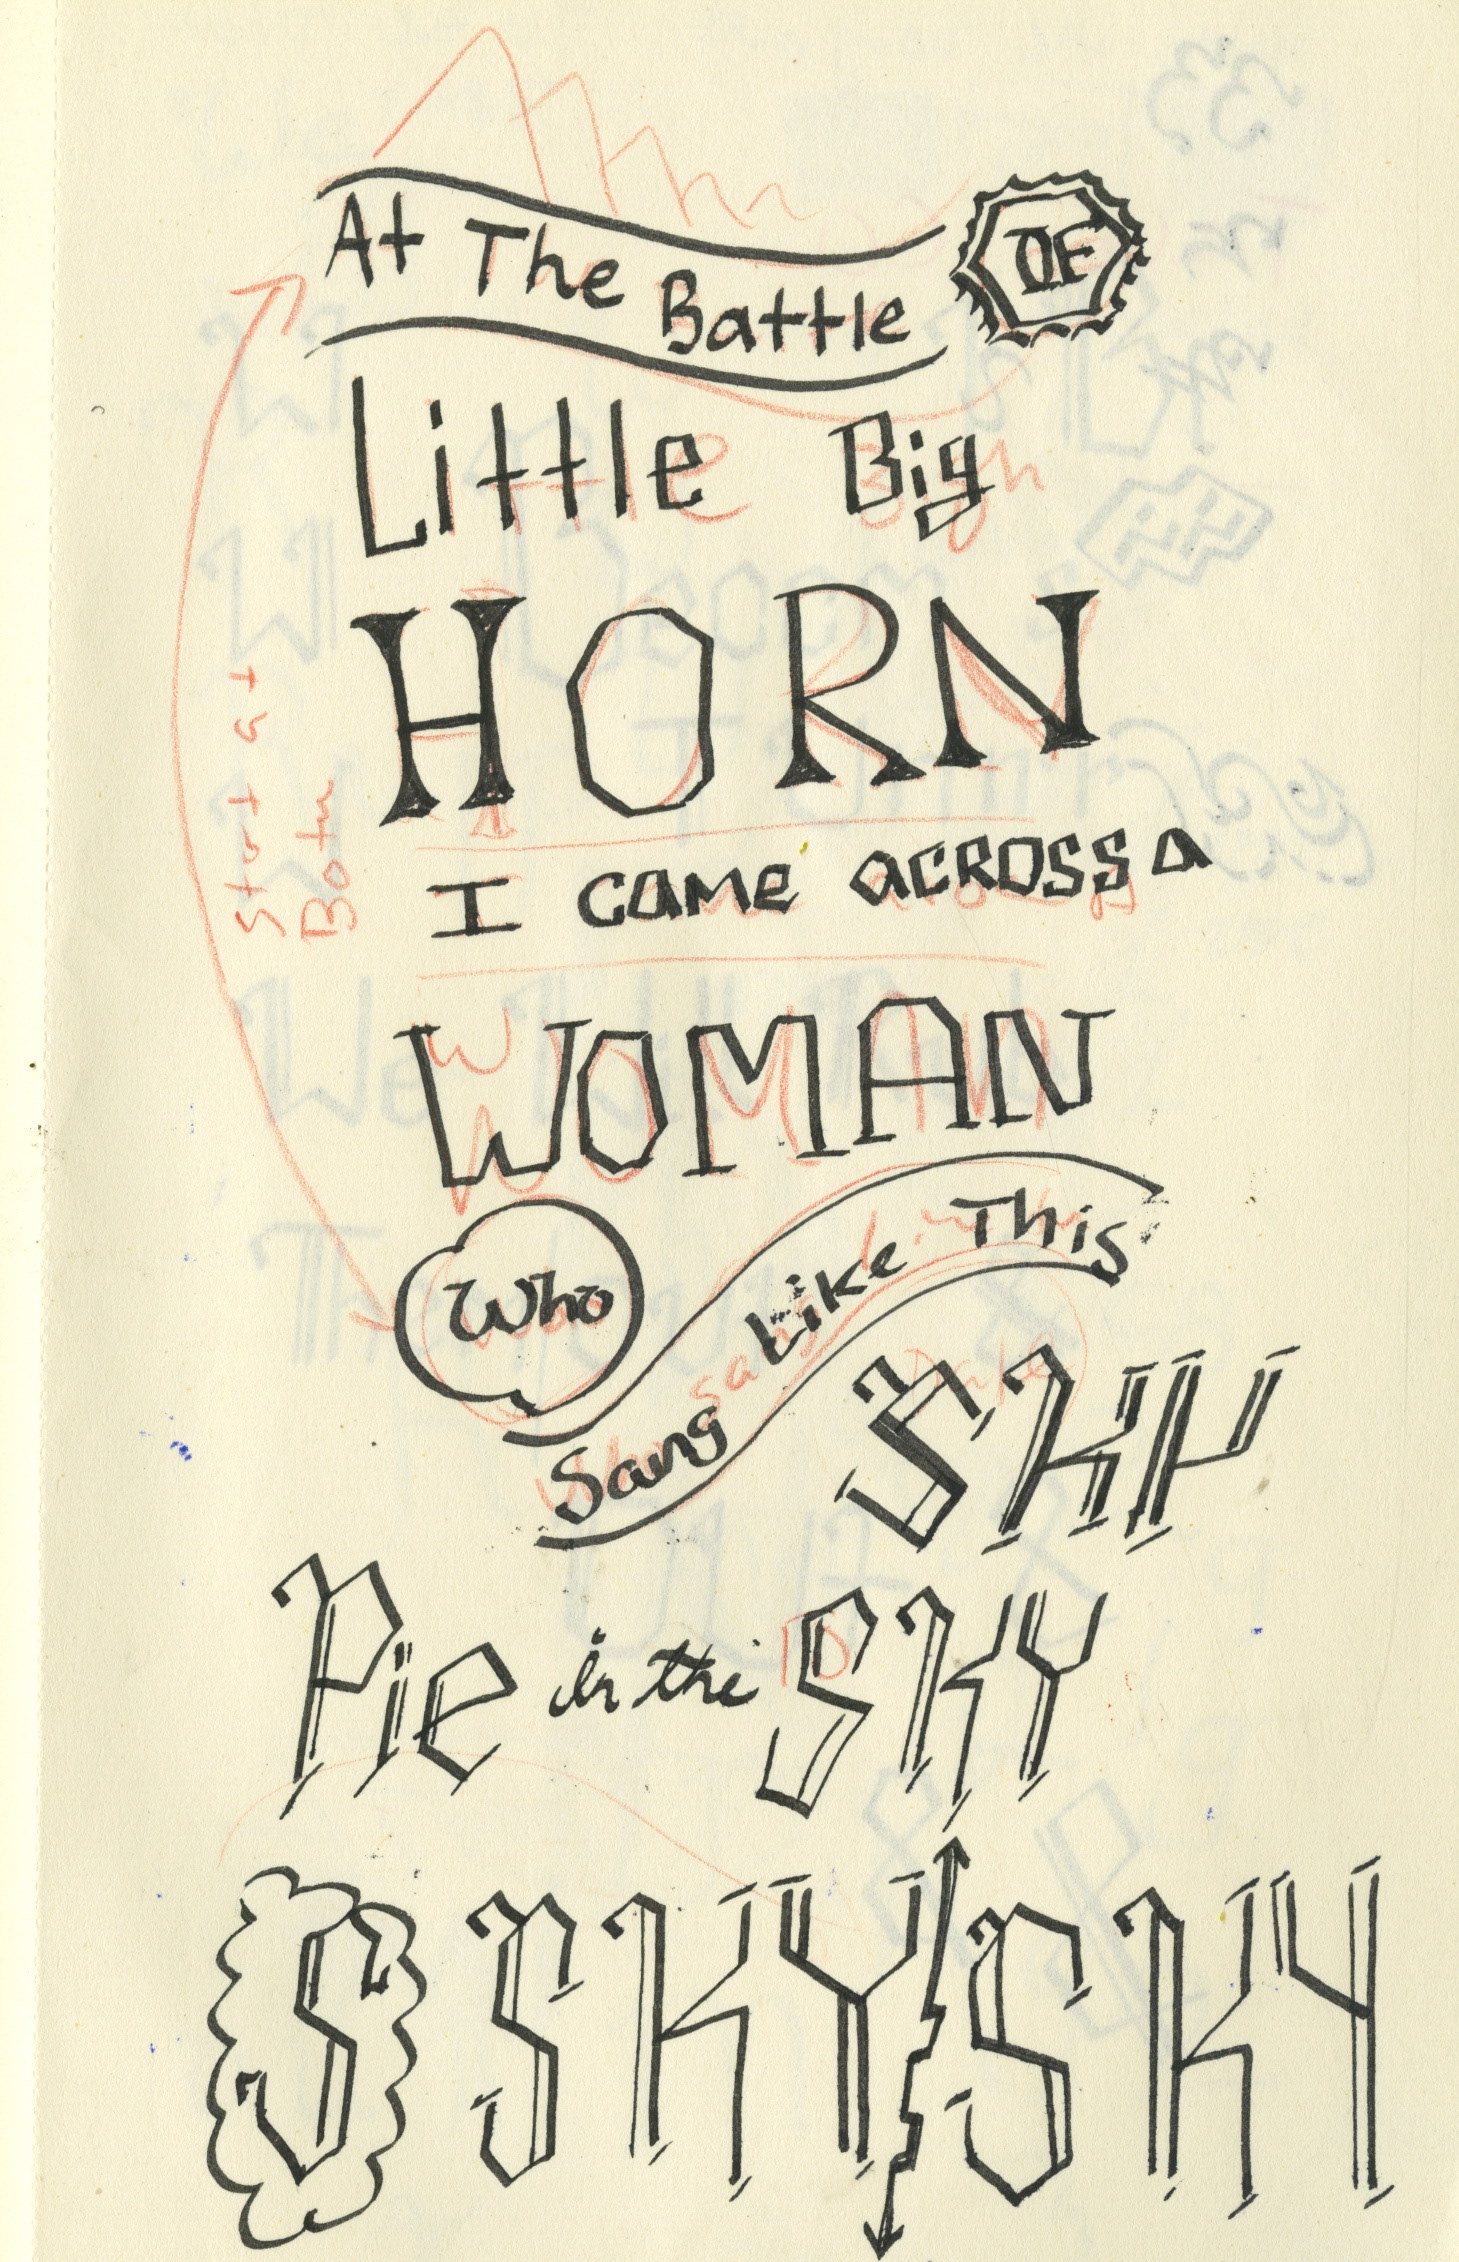 At The Battle OF
Little Big
HORN
I came across a
WOMAN
Who
Sang Like This
SKY
Pie in the SKY
S SKY SKY
Start at
Both